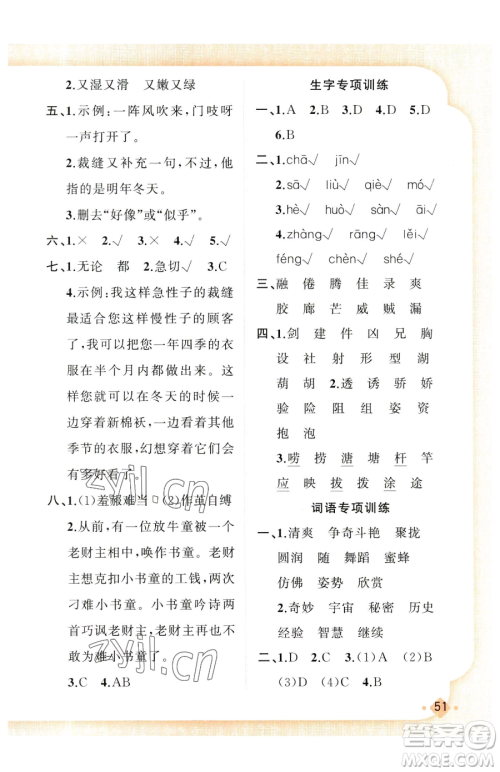 2.又湿又滑　又嫩又绿
五、1.示例：一阵风吹来，门吱呀
一声打开了。
2.裁缝又补充一句，不过，他
指的是明年冬天。
3.删去“好像”或“似乎”。
六、1.×　2.√　3.√　4.×　5.√
七、1.无论　都　2.急切√　3.C
4.示例：我这样急性子的裁缝
最适合您这样慢性子的顾客
了，我可以把您一年四季的衣
服在半个月内都做出来。这
样您就可以在冬天的时候一
边穿着新棉袄，一边欣赏其他
季节的衣服，幻想穿上时会有
多好看了。
八、1.(1)羞赧难当　(2)作茧自缚
2.从前，有一位放牛童被一个
老财主相中，唤作书童。老财
主想克扣小书童的工钱，几次
刁难小书童，小书童吟诗两
首巧讽老财主，老财主再也不
敢为难小书童了。
3.C　4.AB
生字专项训练
一、1.A　2.B　3.D　4.D　5.D
6.B
二、1.chā√　jīn√
2.sā√　liù√　qiè√　mó√
3.hè√　hé√　hé√　hè√
4.zhàng√　zhāng√　lěi√
féng√　chèn√　shé√
三、融　倦　腾　佳　录　爽
胶　廊　芒　威　贼　漏
四、1.剑　建　件　凶　兄　胸
设　社　射　形　型　湖
葫　胡　2.透　诱　骄　娇
验　险　阻　组　姿　资
抱　泡
3.唠　捞　溏　塘　杆　竿
应　映　拨　拔　涂　途
词语专项训练
一、1.清爽　争奇斗艳　聚拢
圆润　随　舞蹈　蜜蜂
仿佛　姿势　欣赏
2.奇妙　宇宙　秘密　历史
经验　智慧　继续
二、1.D　2.D　3.(1)A　(2)B
(3)D　(4)C　4.B
51
zyjl.cn
zyjl.cn
答案圈
MXQE.COM